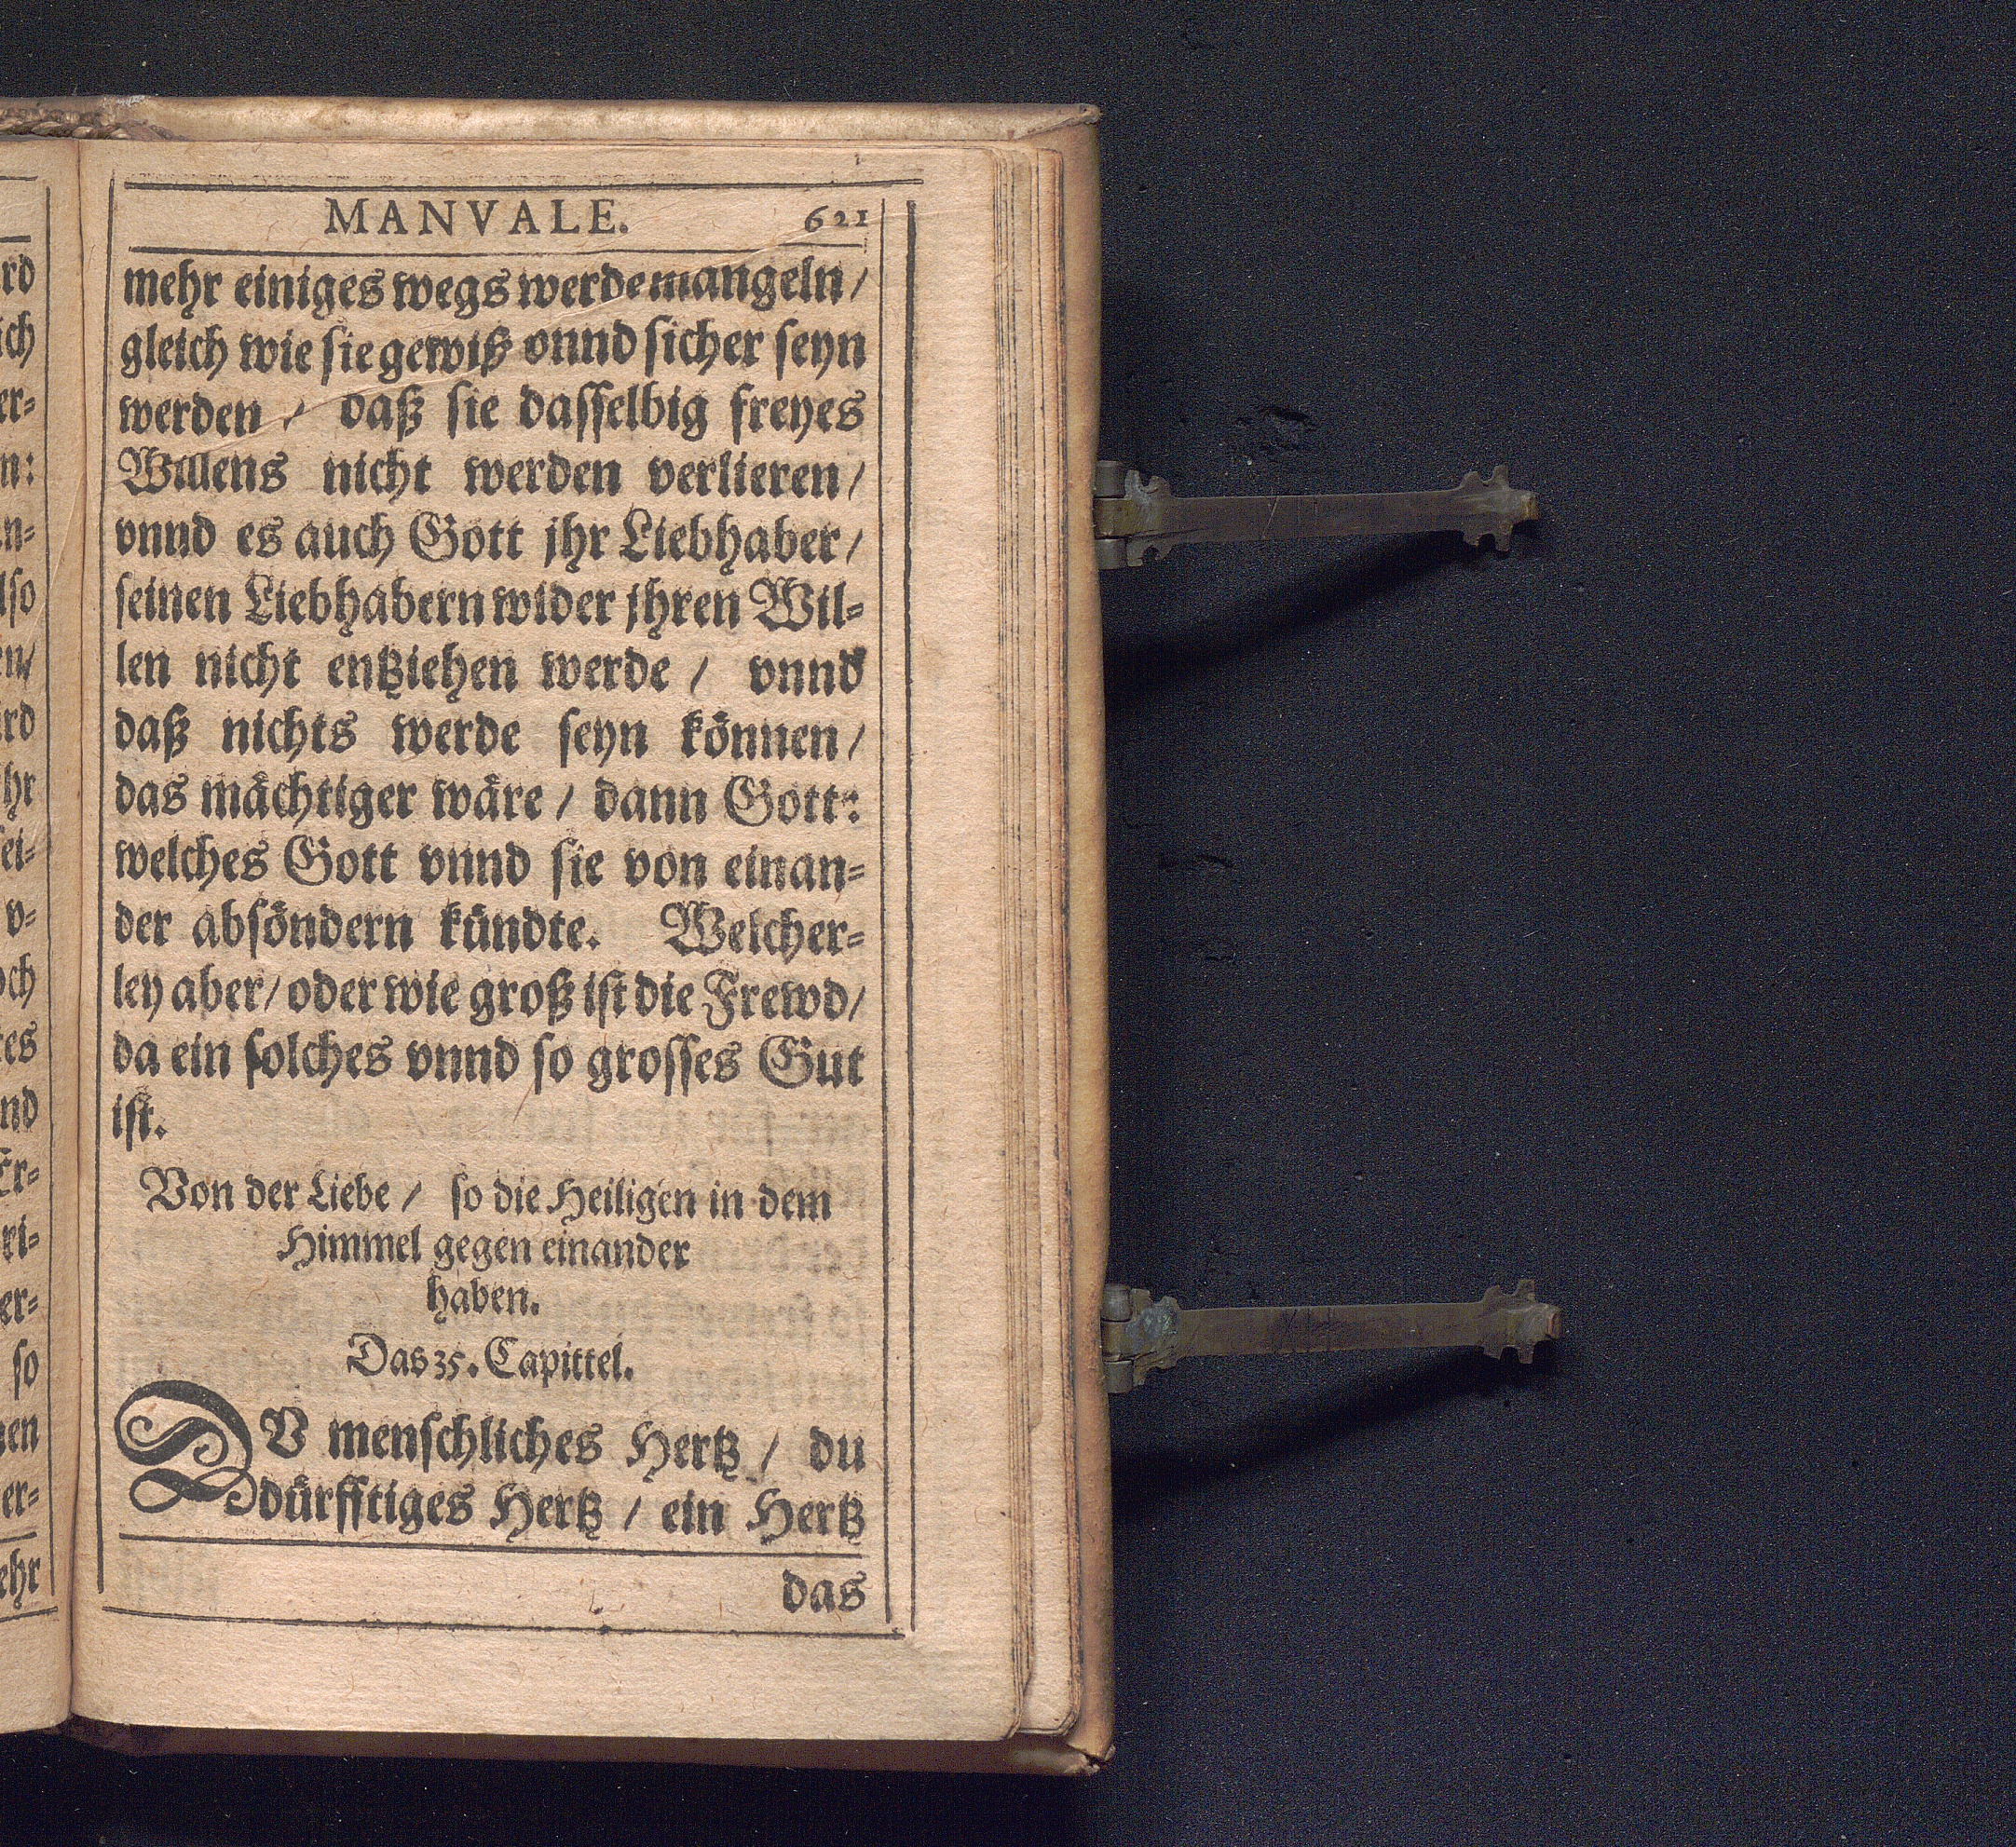 MANVALE. 621
mehr einiges wegs werde mangeln/
gleich wie sie gewiß vnnd sicher seyn
werden / daß sie dasselbig freyes
Willens nicht werden verlieren/
vnnd es auch Gott jhr Liebhaber/
seinen Liebhabern wider jhren Wil-
len nicht entziehen werde / vnnd
daß nichts werde seyn können/
das mächtiger wäre / dann Gott:
welches Gott vnnd sie von einan-
der absöndern kündte. Welcher-
ley aber/ oder wie groß ist die Frewd/
da ein solches vnnd so grosses Gut
ist.
Von der Liebe / so die Heiligen in dem
Himmel gegen einander
haben.
Das 35. Capittel.
DV menschliches Hertz / du
dürfftiges Hertz / ein Hertz
das